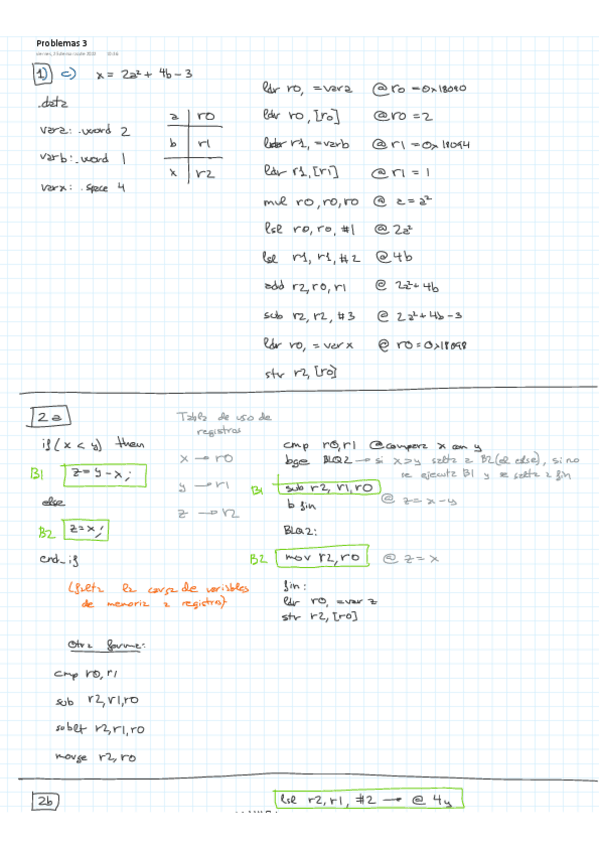 Problemas 3
1) c) x = 2a² + 4b - 3
.data
vara: .word 2
varb: .word 1
varx: .space 4
a r0
b r1
x r2
ldr r0, =vara @ r0 = 0x18090
ldr r0, [r0] @ r0 = 2
ldr r1, =varb @ r1 = 0x18094
ldr r1, [r1] @ r1 = 1
mul r0, r0, r0 @ a = a²
lsl r0, r0, #1 @ 2a²
lsl r1, r1, #2 @ 4b
add r2, r0, r1 @ 2a² + 4b
sub r2, r2, #3 @ 2a² + 4b - 3
ldr r0, = varx @ r0 = 0x18098
str r2, [r0]
2a
if (x < y) then
B1 z = y - x;
else
B2 z = x;
end_if
(falta la carga de variables
de memoria a registros)
Tabla de uso de
registros
x → r0
y → r1
z → r2
cmp r0, r1 @ compara x con y
bge BLQ2 → si x≥y salta a B2 (el else), si no
se ejecuta B1 y se salta a fin
B1 sub r2, r1, r0
b fin @ z = x - y
BLQ2:
B2 mov r2, r0 @ z = x
fin:
ldr r0, =var z
str r2, [r0]
Otra forma:
cmp r0, r1
sub r2, r1, r0
sublt r2, r1, r0
movge r2, r0
2b
lsl r2, r1, #2 → @ 4y